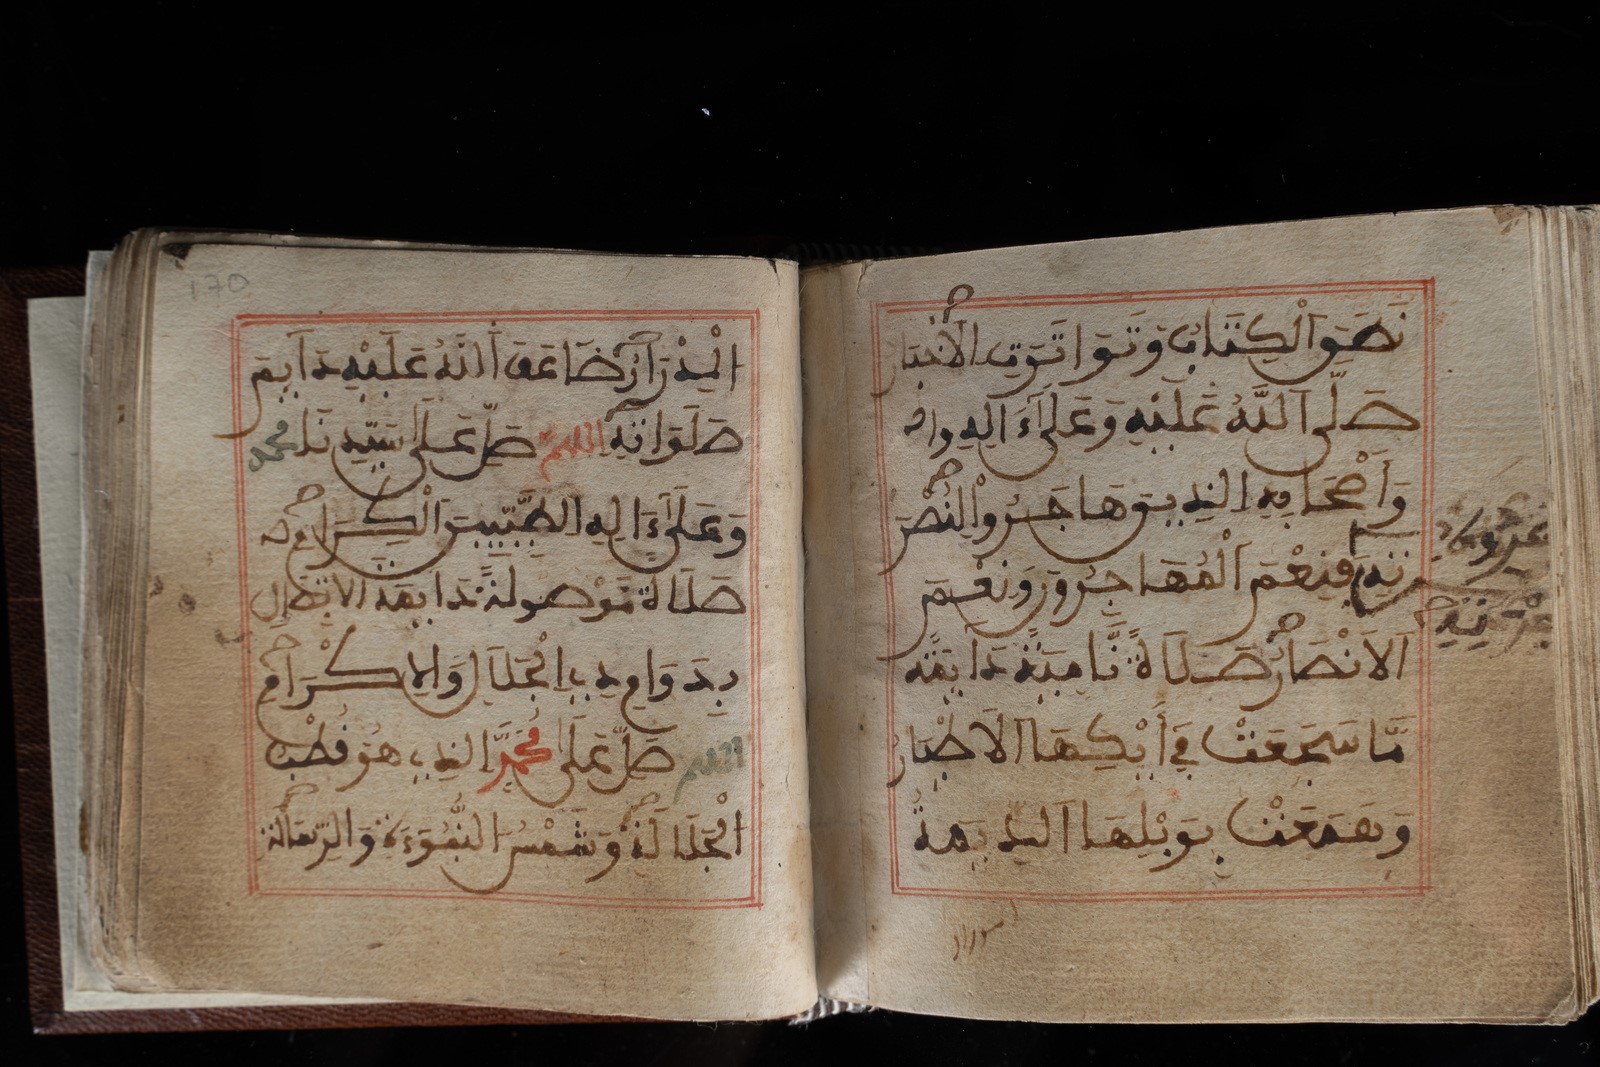 نَطَقَ الْكِتَابُ وَتَوَاتَرَتِ الْأَخْبَارُ
صَلَّى اللَّهُ عَلَيْهِ وَعَلَى ءَالِهِ
وَأَصْحَابِهِ الذِينَ هَاجَرُوا لِنُصْرَ
تِهِ فَنِعْمَ الْمُهَاجِرُونَ وَنِعْمَ
الْأَنْصَارُ صَلَاةً نَّامِيَةً دَائِمَةً
مَّا سَجَعَتْ فِي أَيْكِهَا الْأَطْيَارُ
وَهَمَعَتْ بِوَبْلِهَا الدِّيمَةُ
الْمِدْرَارُ ضَاعَفَ اللَّهُ عَلَيْهِ دَائِمَ
صَلَوَاتِهِ اللهم صَلِّ عَلَى سَيِّدِنَا محمد
وَعَلَى ءَالِهِ الطَّيِّبِينَ الْكِرَامِ
صَلَاةً مَّوْصُولَةً دَائِمَةَ الِاتِّصَالِ
بِدَوَامِ ذِي الْجَلَالِ وَالْإِكْرَامِ
اللهم صَلِّ عَلَى مُحَمَّدٍ الذِي هُوَ قُطْبُ
الْجَلَالَةِ وَشَمْسُ النُّبُوءَةِ وَالرِّسَالَةِ
170